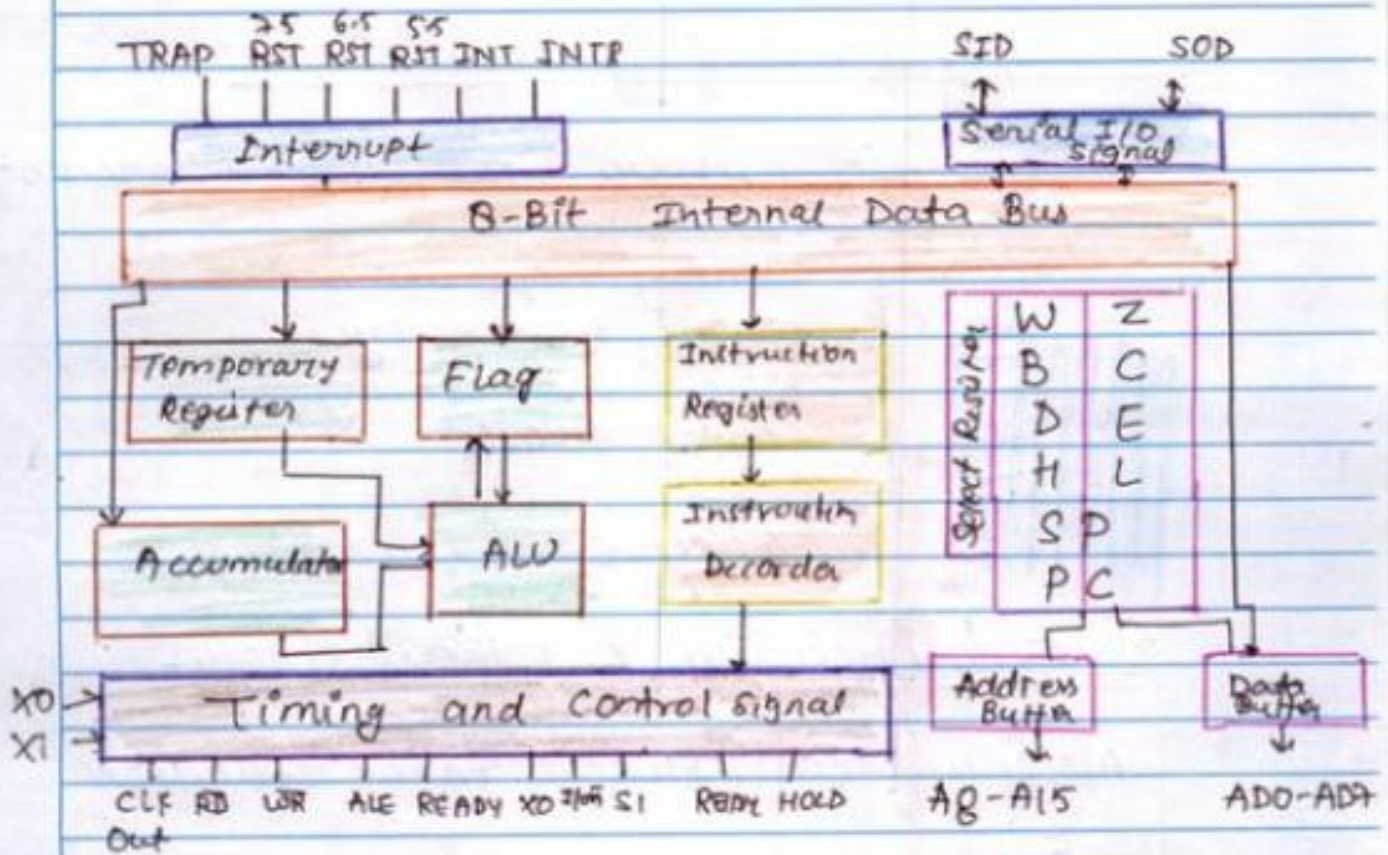 7.5 6.5 5.5
TRAP RST RST RST INT INTR
SID SOD
Interrupt
Serial I/O
Signal
8-Bit Internal Data Bus
Temporary
Register
Flag
Instruction
Register
W Z
B C
D E
H L
S P
P C
Select
Accumulator
ALU
Instruction
Decorder
Timing and Control Signal
X0
X1
Address
Buffer
Data
Buffer
CLK RD WR ALE READY X0 S1 HOLD
Out
A8-A15
AD0-AD7